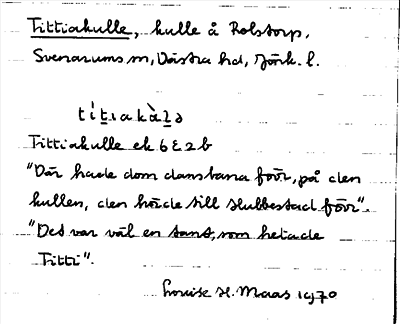 Tittiakulle, kulle å Rolstorp,
Svenarums sn, Västra hd, Jönk. l.
títiakàlə
Tittiakulle ek 6 E 2 b
"Där hade dom dansbana förr, på den
kullen, den hörde till Hubbestad förr".
"Det var väl en tant, som hetade
Titti".
Louise H. Maas 1970